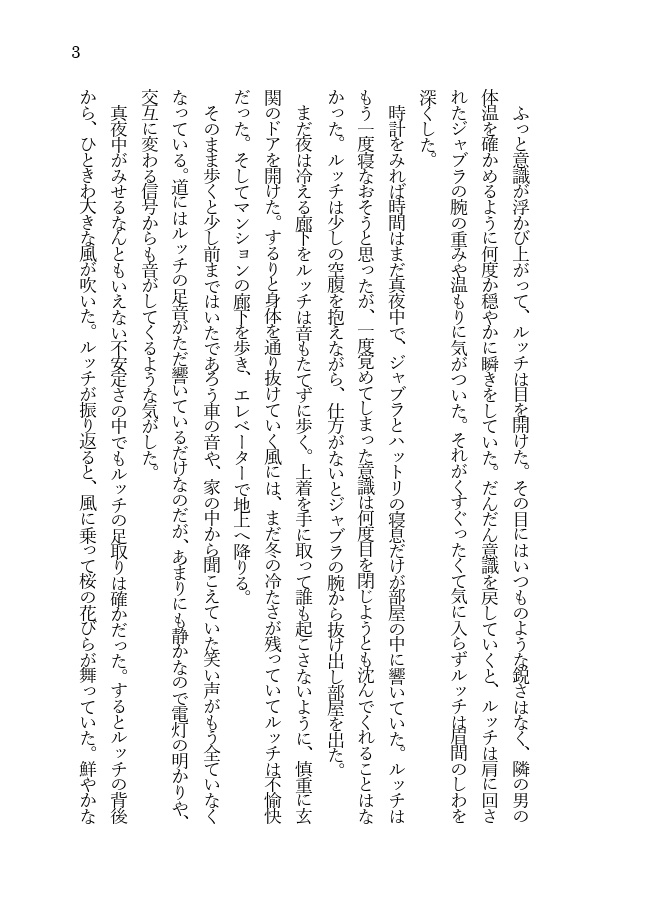 3
　ふっと意識が浮かび上がって、ルッチは目を開けた。その目にはいつものような鋭さはなく、隣の男の
体温を確かめるように何度か穏やかに瞬きをしていた。だんだん意識を戻していくと、ルッチは肩に回さ
れたジャブラの腕の重みや温もりに気がついた。それがくすぐったくて気に入らずルッチは眉間のしわを
深くした。
　時計をみれば時間はまだ真夜中で、ジャブラとハットリの寝息だけが部屋の中に響いていた。ルッチは
もう一度寝なおそうと思ったが、一度覚めてしまった意識は何度目を閉じようとも沈んでくれることはな
かった。ルッチは少しの空腹を抱えながら、仕方がないとジャブラの腕から抜け出し部屋を出た。
　まだ夜は冷える廊下をルッチは音もたてずに歩く。上着を手に取って誰も起こさないように、慎重に玄
関のドアを開けた。するりと身体を通り抜けていく風には、まだ冬の冷たさが残っていてルッチは不愉快
だった。そしてマンションの廊下を歩き、エレベーターで地上へ降りる。
　そのまま歩くと少し前まではいたであろう車の音や、家の中から聞こえていた笑い声がもう全ていなく
なっている。道にはルッチの足音がただ響いているだけなのだが、あまりにも静かなので電灯の明かりや、
交互に変わる信号からも音がしてくるような気がした。
　真夜中がみせるなんともいえない不安定さの中でもルッチの足取りは確かだった。するとルッチの背後
から、ひときわ大きな風が吹いた。ルッチが振り返ると、風に乗って桜の花びらが舞っていた。鮮やかな